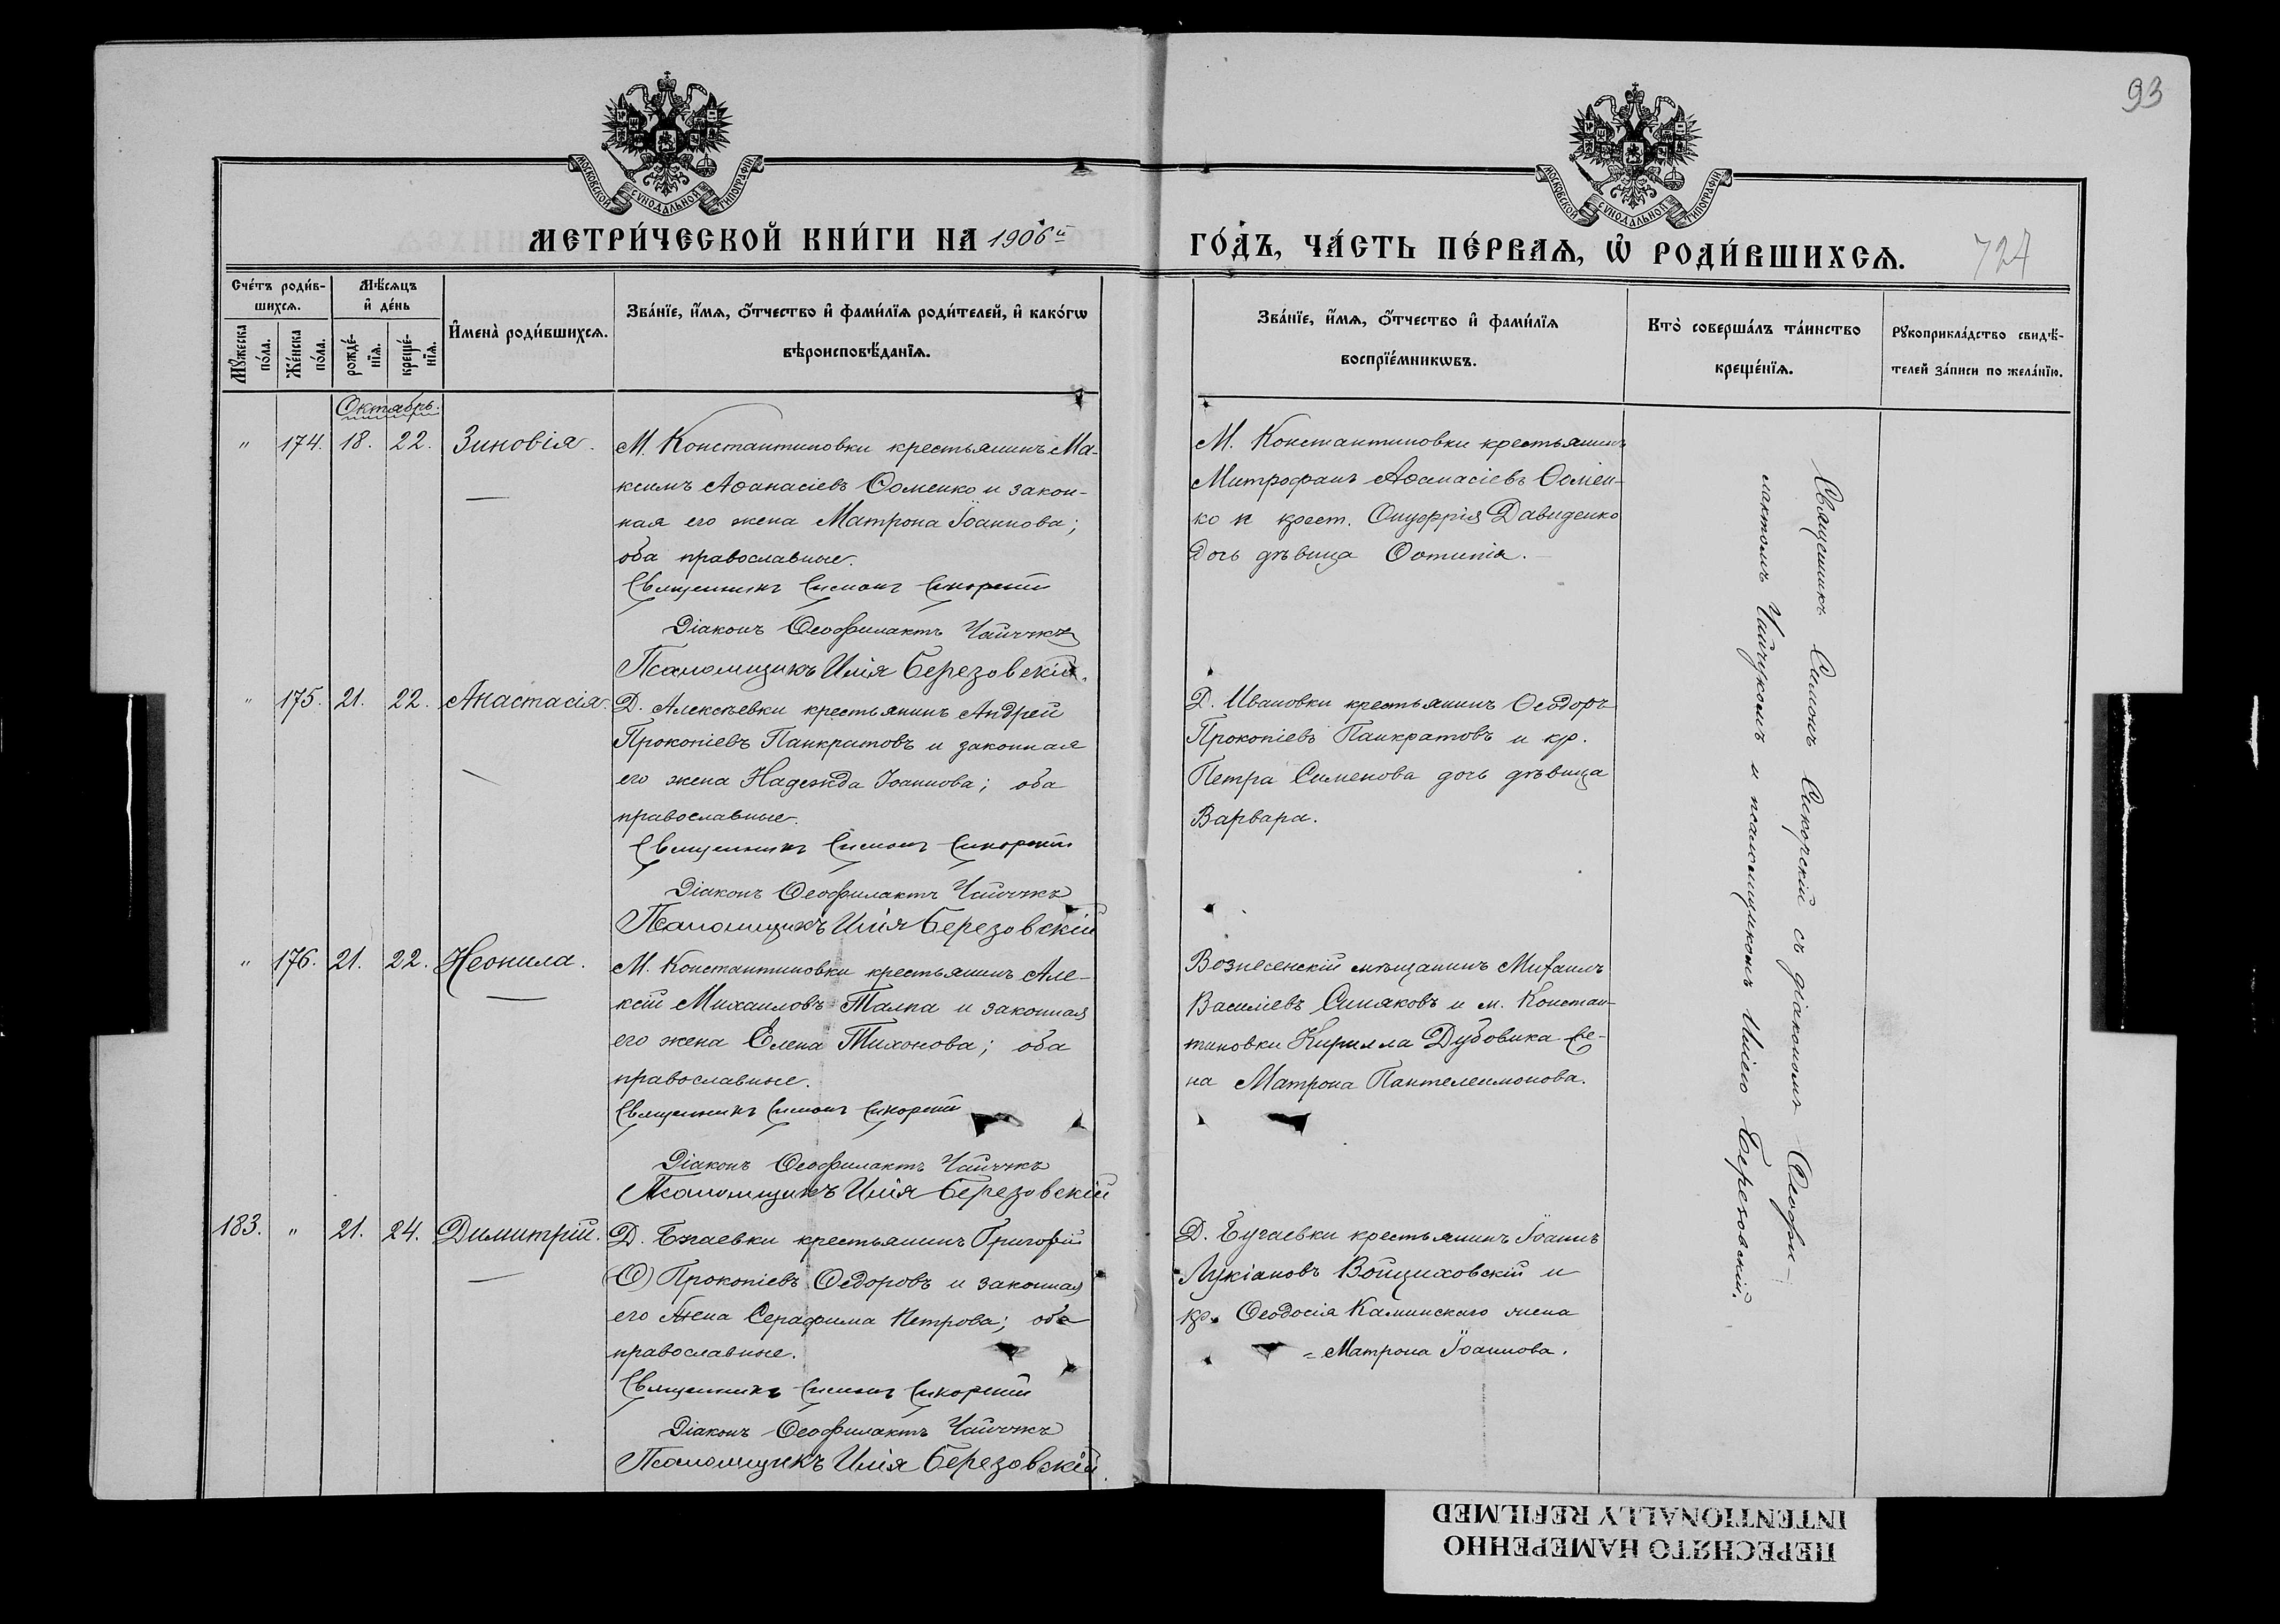 93
МОСКОВСКОЙ СѴНОДАЛЬНОЙ ТИПОГРАФІИ
МОСКОВСКОЙ СѴНОДАЛЬНОЙ ТИПОГРАФІИ
МЕТРИ́ЧЕСКОЙ КНИ́ГИ НА 1906й
ГО́ДЪ, ЧА́СТЬ ПЕ́РВАѦ, Ѡ҆ РОДИ́ВШИХСѦ.
724
Сче́тъ роди́в-
шихсѧ.
Мꙋ́жеска
по́ла.
Же́нска
по́ла.
Мѣ́сѧцъ
и҆ де́нь
рожде́-
нїѧ.
креще́-
нїѧ.
И҆мена̀ роди́вшихсѧ.
Зва́нїе, и҆́мѧ, ѻ҆́тчество и҆ фами́лїѧ роди́телей, и҆ како́гѡ
вѣроисповѣ́данїѧ.
Зва́нїе, и҆́мѧ, ѻ҆́тчество и҆ фами́лїѧ
воспрїе́мникѡвъ.
Кто̀ соверша́лъ та́инство
креще́нїѧ.
Рꙋкоприкла́дство свидѣ́-
телей за́писи по жела́нїю.
Октябрь.
" 174. 18. 22. Зиновія.
М. Константиновки крестьянинъ Ма-
ксимъ Аѳанасіевъ Ѳоменко и закон-
ная его жена Матрона Іоаннова;
оба православные.
Священникъ Симонъ Сикорскій
Діаконъ Ѳеофилактъ Чайчукъ
Псаломщикъ Илія Березовскій.
М. Константиновки крестьянинъ
Митрофанъ Аѳанасіевъ Ѳомен-
ко и крест. Онуфрія Давиденко
дочь дѣвица Фотинія.
" 175. 21. 22. Анастасія.
Д. Алексѣевки крестьянинъ Андрей
Прокопіевъ Панкратовъ и законная
его жена Надежда Іоаннова; оба
православные.
Священникъ Симонъ Сикорскій
Діаконъ Ѳеофилактъ Чайчукъ
Псаломщикъ Илія Березовскій
Д. Ивановки крестьянинъ Ѳеодоръ
Прокопіевъ Панкратовъ и кр.
Петра Сименова дочь дѣвица
Варвара.
" 176. 21. 22. Неонила.
М. Константиновки крестьянинъ Але-
ксій Михаиловъ Талпа и законная
его жена Елена Тихонова; оба
православные.
Священникъ Симонъ Сикорскій
Діаконъ Ѳеофилактъ Чайчукъ
Псаломщикъ Илія Березовскій
Вознесенскій мѣщанинъ Михаилъ
Василіевъ Синяковъ и м. Констан-
тиновки Кирилла Дубовика
на Матрона Пантелеимонова.
183. " 21. 24. Димитрій.
Д. Бугаевки крестьянинъ Григорій
(О) Прокопіевъ Ѳедоровъ и законная
его жена Серафима Петрова; оба
православные.
Священникъ Симонъ Сикорскій
Діаконъ Ѳеофилактъ Чайчукъ
Псаломщикъ Илія Березовскій.
Д. Бугаевки крестьянинъ Іоаннъ
Лукіановъ Войциховскій и
кр. Ѳеодосія Каминскаго жена
Матрона Іоаннова.
Священникъ Симонъ Сикорскій съ діакономъ Ѳеофи-
лактомъ Чайчукомъ и псаломщикомъ Иліею Березовскій.
ПЕРЕСНЯТО НАМЕРЕННО
INTENTIONALLY REFILMED